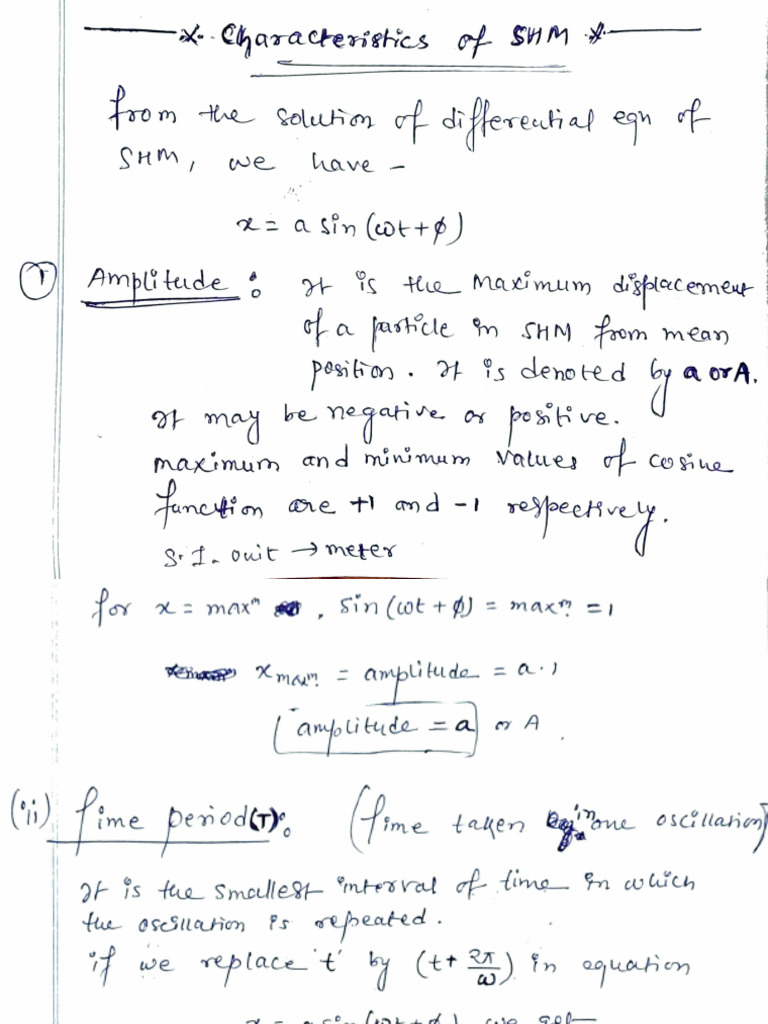 x. Characteristics of SHM *
from the solution of differential eqn of
SHM, we have -
x = a sin (ωt + φ)
(I) Amplitude : It is the maximum displacement
of a particle in SHM from mean
position. It is denoted by a or A.
It may be negative or positive.
maximum and minimum values of cosine
function are +1 and -1 respectively.
S.I. unit → meter
for x = maxᵐ , sin (ωt + φ) = maxᵐ = 1
x maxᵐ = amplitude = a.1
amplitude = a or A.
(ii) Time period (T): (Time taken in one oscillation)
It is the smallest interval of time in which
the oscillation is repeated.
if we replace 't' by (t + 2π/ω) in equation
x = a sin (ωt + φ) we get